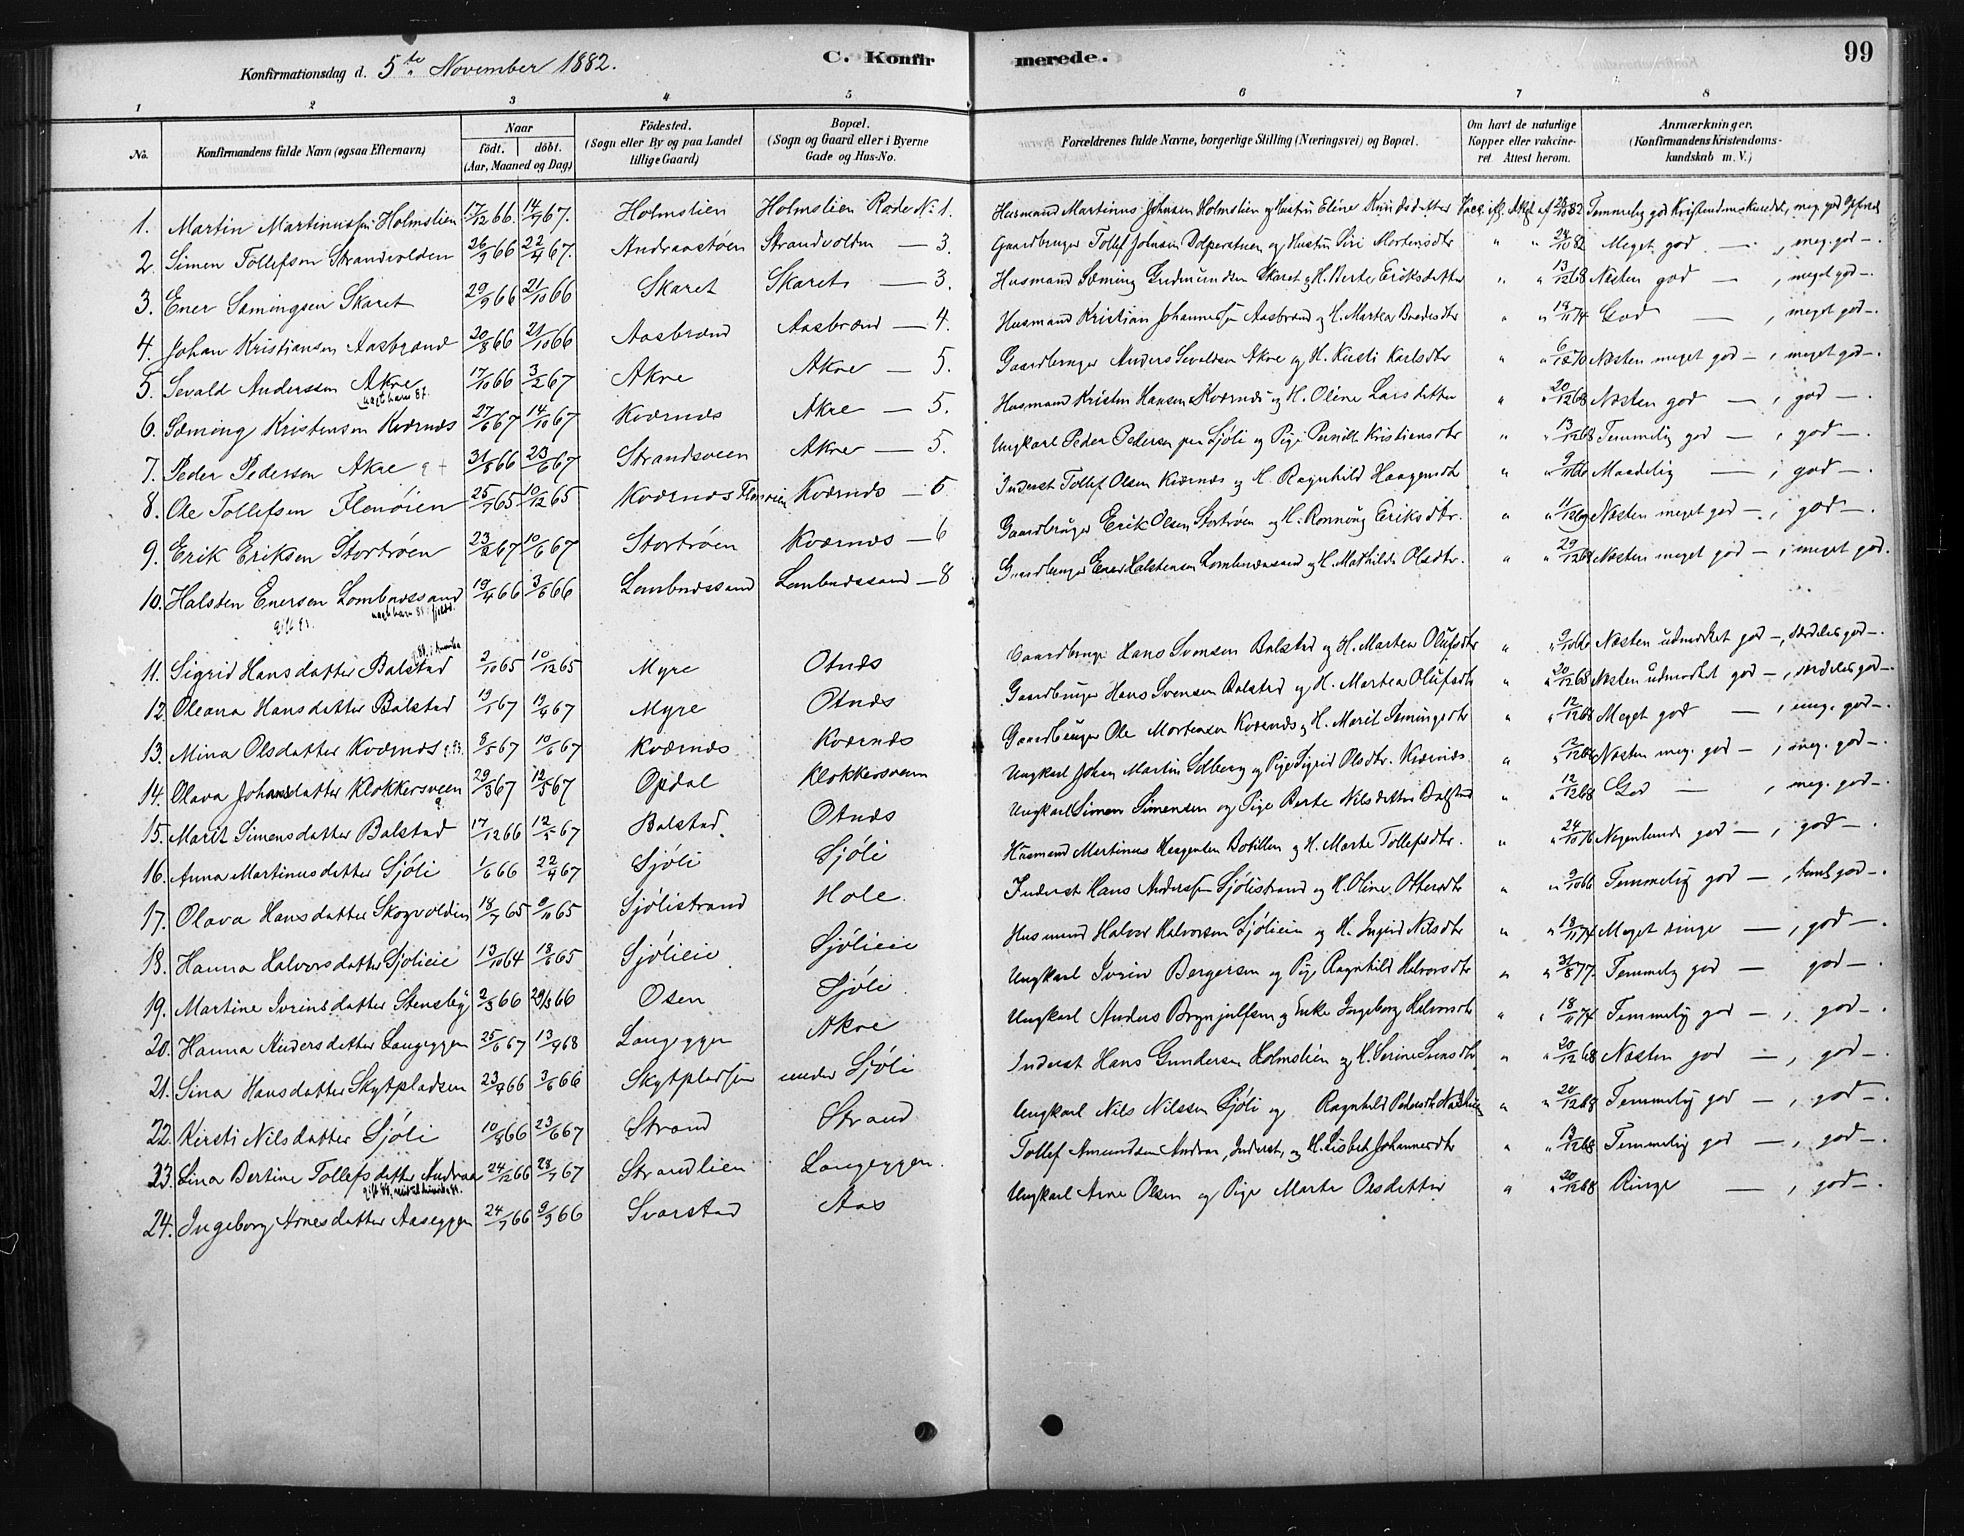 Konfirmationsdag d. 5te November 1882.
C. Konfirmerede.
99
1 2 3 4 5 6 7 8
No.
Konfirmandens fulde Navn (ogsaa Efternavn)
Naar
født. døbt.
(Aar, Maaned og Dag)
Fødested.
(Sogn eller By og paa Landet
tillige Gaard)
Bopæl.
(Sogn og Gaard eller i Byerne
Gade og Hus-No.
Forældrenes fulde Navne, borgerlige Stilling (Næringsvei) og Bopæl.
Om havt de naturlige
Kopper eller vakcineret
Attest herom.
Anmærkninger.
(Konfirmandens Kristendomskundskab
m. V.)
1. Martin Martinussen Holmslien 17/12 66. 14/4 67. Holmslien Holmslien Rode No 1. Husmand Martinus Johnsen Holmslien og Hustru Eline Knudsdatter Temmelig god Kristendomskundsk., meg. god
2. Simen Tollefsen Strandvolden 26/9 66 22/4 67. Andraastøen Strandvolden — 3. Gaardbruger Tollef Johnsen og Hustru Siri Mortensdtr " " Meget god —, meg. god —.
3. Ener Sæmingsen Skaret 29/9 66 21/10 66 Skaret Skaret — 3. Husmand Sæming Gudmundsen Skaret og H. Berte Eriksdatter " " 13/12 68 Næsten god —, meget god —.
4. Johan Kristiansen Aasbrænd 20/8 66 21/10 66 Aasbrænd Aasbrænd — 4. Husmand Kristian Johannessen Aasbrænd og H. Martea " " 19/11 74 God —, meget god —.
5. Sevald Anderssen Akre 17/10 66 3/2 67 Akre Akre — 5. Gaardbruger Anders Sevaldsen Akre og H. Kirsti Karlsdtr " " Næsten meget god —, meget god —.
6. Sæming Kristensen Kværnæs 27/6 67 14/10 67 Kværnæs Akre — 5. Husmand Kristen Hansen Kværnæs og H. Oline Larsdatter " " 20/12 68 Næsten god —, god —.
7. Peder Pedersen Akre 31/8 66 23/6 67 Strandsveen Akre — 5. Ungkarl Peder Pedersen Sjøli og Pige Pernille Kristiansdtr " " 13/12 68 Temmelig god —, god —.
8. Ole Tollefsen Flenøien 25/7 65 10/12 65 Kværnæs Flenøien Kværnæs — 5 Inderst Tollef Olsen Kværnæs og H. Ragnhild Haagensdtr " " 9/10 66 Maadelig —, god —.
9. Erik Eriksen Stortrøen 23/2 67 10/6 67 Stortrøen Kværnæs — 6 Gaardbruger Erik Olsen Stortrøen og H. Rønnoug Eriksdtr. " " Næsten meget god —, god —.
10. Halsten Enersen Lombnæssand 19/4 66 3/6 66 Lombnæssand Lombnæssand — 8 Gaardbruger Ener Halstensen Lombnæssand og H. Mathilde Olsdtr. " " Næsten meget god —, meget god.
11. Sigrid Hansdatter Balstad 2/10 65 10/12 65 Myre Otnæs Gaardbruger Hans Svensen Balstad og H. Martea Olufsdtr " " 9/10 66 Næsten udmærket god —, særdeles god —.
12. Oleana Hansdatter Balstad 19/1 67 19/4 67 Myre Otnæs Gaardbruger Hans Svensen Balstad og H. Martea Olufsdtr " " 20/12 68 Næsten udmærket god —, særdeles god —.
13. Mina Olsdatter Kværnæs 8/5 67 10/6 67 Kværnæs Kværnæs Gaardbruger Ole Mortensen Kværnæs og H. Marit Sæmingsdtr " " 12/12 68 Meget god —, meg. god —.
14. Olava Johansdatter Klokkersveen 29/3 67 12/5 67 Opdal Klokkersveen Ungkarl Johan Martin Solberg og Pige Sigrid Olsdtr. Kværnæs. " " Næsten meg. god —, meg. god —.
15. Marit Simensdatter Balstad 17/12 66 12/5 67 Balstad. Otnæs Ungkarl Simen Simensen og Pige Berte Nilsdatter Balstad " " 12/12 68 God —, meg. god —.
16. Anna Martinusdatter Sjøli 1/6 66 22/4 67 Sjøli Sjøli Husmand Martinus Haagensen og H. Marte Tollefsdtr. " " 24/10 76 Nogenlunde god —, god —.
17. Olava Hansdatter Skogvolden 18/7 65 9/11 65 Sjølistrand Hole Inderst Hans Anderssen Sjølistrand og H. Oline Ottersdtr " " 9/10 66 Temmelig god —, teml. god —.
18. Hanna Halvorsdatter Sjølieie 13/10 64 18/6 65 Sjølieie Sjølieie Husmand Halvor Halvorsen Sjølieie og H. Ingrid Nilsdtr " " 19/11 74 Meget ringe —, god —.
19. Martine Iverinsdatter Stensby 2/3 66 29/3 66 Osen Sjøli Ungkarl Iverin Bergersen og Pige Ragnhild Halvorsdtr " " 31/8 77. Temmelig god — god —.
20. Hanna Andersdatter Langeggen 25/6 67 13/4 68 Langeggen Akre Ungkarl Anders Brynjulfsen og Enke Ingeborg Halvorsdtr " " 18/11 74 Temmelig god —, god —.
21. Sina Hansdatter Skytpladsen 23/4 66 3/6 66 Skytpladsen under Sjøli Inderst Hans Gundersen Holmslien og H. Serine Svensdtr. " " 20/12 68 Næsten god —, god —.
22. Kirsti Nilsdatter Sjøli 10/8 66 23/6 67 Strand Strand Ungkarl Nils Nilssen Sjøli og Ragnhild Pedersdtr " " 20/12 68 Temmelig god —, god —.
23. Lina Bertine Tollefsdatter Andraa 24/12 66 28/7 67 Strandlien Langeggen. Tollef Amundsen Andraa, Inderst, og H. Lisbet Johannesdtr " " 13/12 68 Temmelig god —, god —.
24. Ingeborg Arnesdatter Aaseggen 24/7 66 9/9 66 Svarstad Aas Ungkarl Arne Olsen og Pige Marte Olsdatter " " 20/12 68 Ringe —, god —.